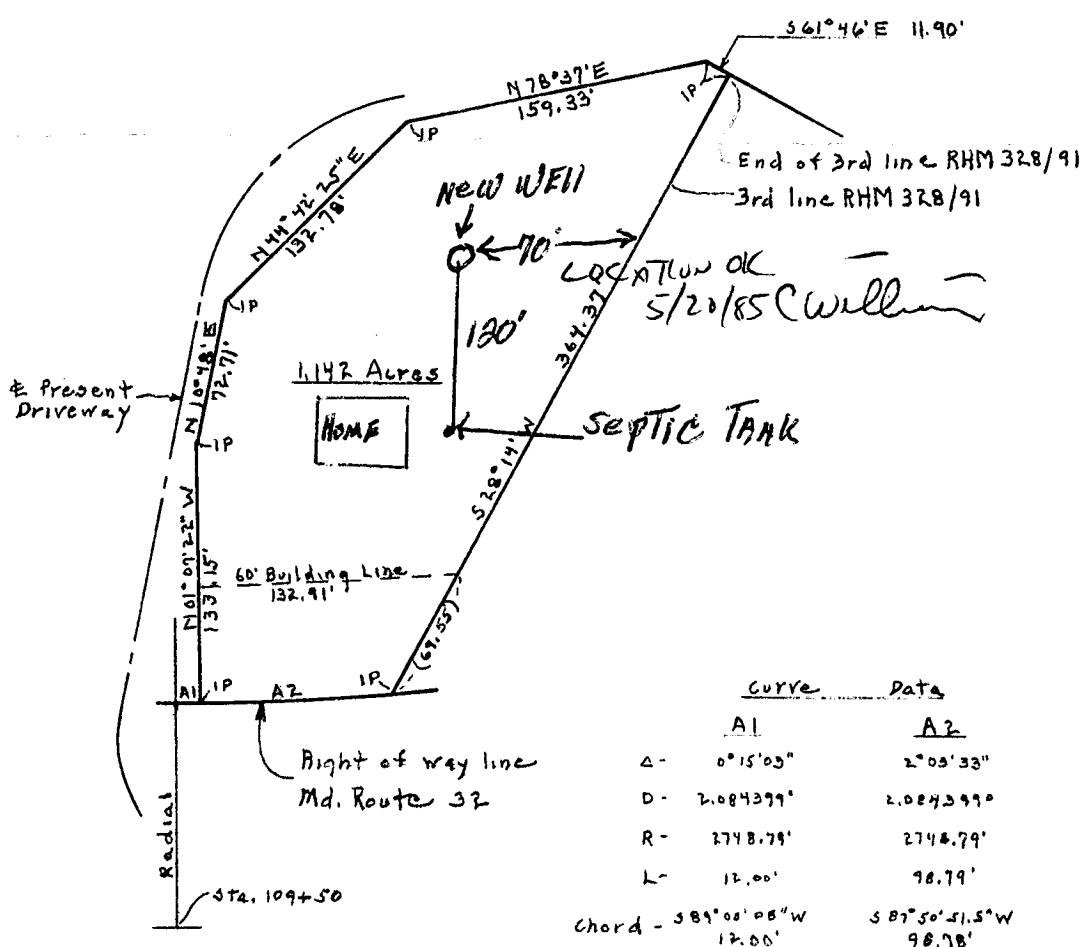 S61°46'E 11.90'
N78°37'E
159.33'
IP
IP
End of 3rd line RHM 328/91
3rd line RHM 328/91
NEW WELL
N44°42'25"E
132.78'
70'
LOCATION OK
5/20/85 C Williams
IP
120'
364.37
N10°48'E
72.71'
₵ Present
Driveway
1.142 Acres
HOME
SEPTIC TANK
IP
S28°14'W
N01°07'22"W
133.15'
60' Building Line
132.91'
(69.55)
A1
IP
A2
IP
Right of way line
Md. Route 32
Radial
Sta. 109+50
Curve Data
A1 A2
Δ- 0°15'03" 2°03'33"
D- 2.084399° 2.084399°
R- 2748.79' 2748.79'
L- 12.00' 98.79'
Chord - S89°00'08"W S87°50'51.5"W
12.00' 98.78'